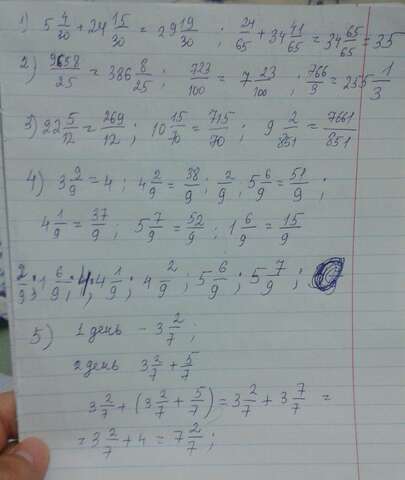 1) 5 4/30 + 24 15/30 = 29 19/30 ; 24/65 + 34 41/65 = 34 65/65 = 35
2) 9658/25 = 386 8/25 ; 723/100 = 7 23/100 ; 766/3 = 255 1/3
3) 22 5/12 = 269/12 ; 10 15/70 = 715/70 ; 9 2/851 = 7661/851
4) 3 9/9 = 4 ; 4 2/9 = 38/9 ; 2/9 ; 5 6/9 = 51/9 ;
4 1/9 = 37/9 ; 5 7/9 = 52/9 ; 1 6/9 = 15/9
2/9 ; 1 6/9 ; 4 ; 4 1/9 ; 4 2/9 ; 5 6/9 ; 5 7/9 ;
5) 1 день - 3 2/7 ;
2 день 3 2/7 + 5/7
3 2/7 + (3 2/7 + 5/7) = 3 2/7 + 3 7/7 =
= 3 2/7 + 4 = 7 2/7 ;